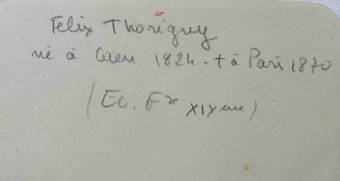 Felix Thorigny
né à Caen 1824 - † à Paris 1870
(Ec. Fse XIXme)